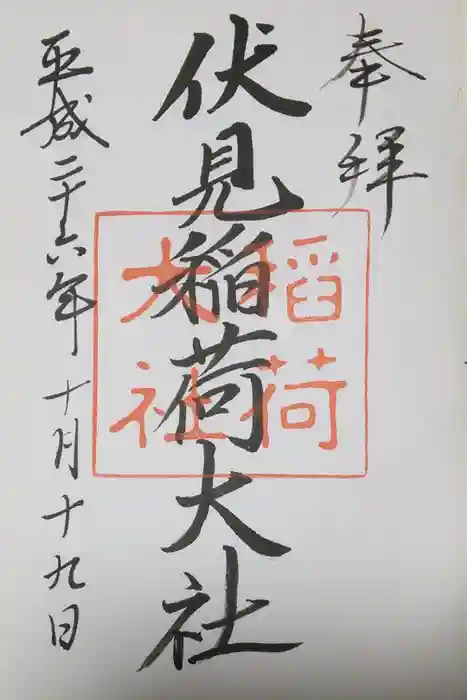 奉拝
伏見稲荷大社
稲荷
大社
平成二十六年十月十九日